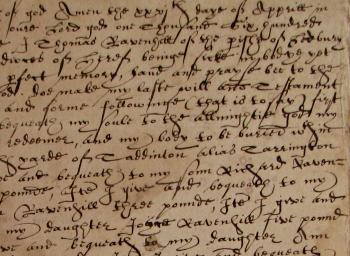 of god Amen the xxxth daye of Apprill in
oure Lord god one Thousand Six hundreth
I Thomas Ravenhill of the pishe of Ledbury
of Heref being sicke in bodye yet
pfect memory, laud and prayse bee to the
god doe make my laste will and Testament
and forme followinge (that is to say) first
bequeath my soule to the allmightie god my
redeemer, and my body to be buried within
yarde of Taddinton alias Tarrington
ve and bequeath to my sone Richard Raven-
pounde, Ite I give and bequeath to my
Ravenhill three pounde, Ite I gyve and
my daughter Joyce Ravenhill five pound
ve and bequeath to my daughter Ann
and bequeath